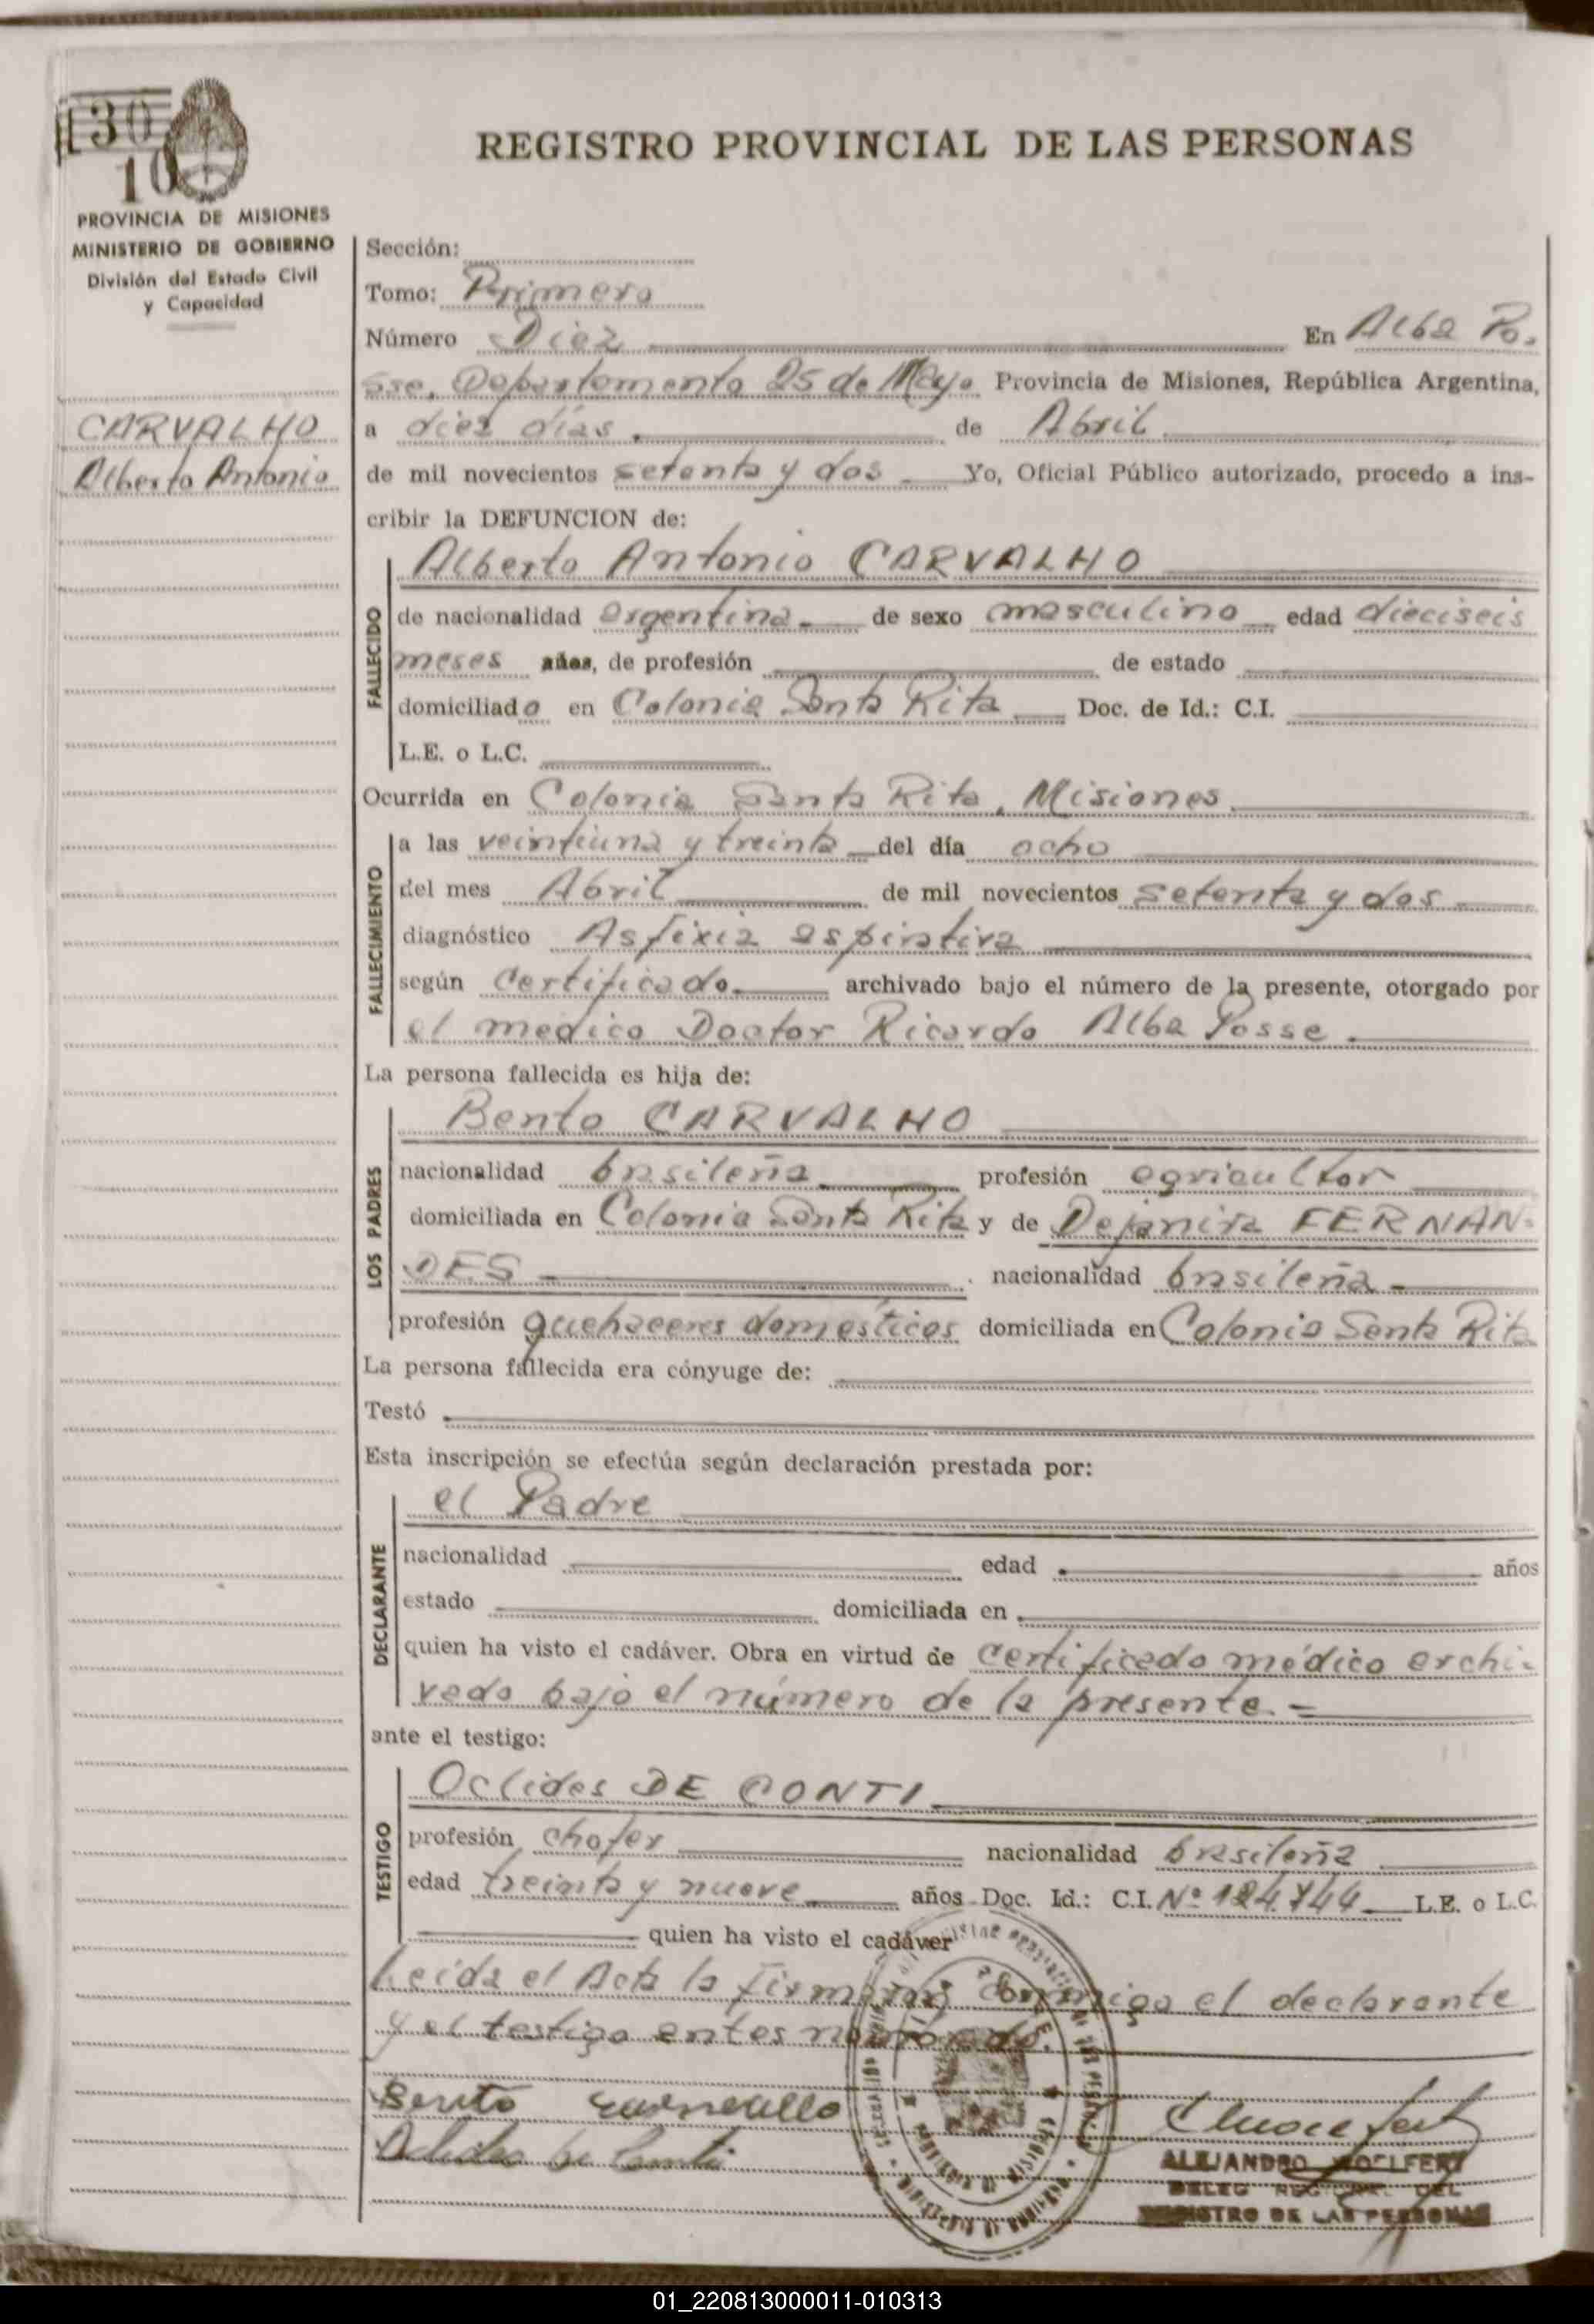 30
10
PROVINCIA DE MISIONES
MINISTERIO DE GOBIERNO
División del Estado Civil
y Capacidad
CARVALHO
Alberto Antonio
REGISTRO PROVINCIAL DE LAS PERSONAS
Sección:
Tomo: Primero
Número Diez En Alba Po-
sse, Departamento 25 de Mayo Provincia de Misiones, República Argentina,
a diez días de Abril
de mil novecientos setenta y dos Yo, Oficial Público autorizado, procedo a ins-
cribir la DEFUNCION de:
FALLECIDO
Alberto Antonio CARVALHO
de nacionalidad argentina de sexo masculino edad dieciseis
meses años, de profesión de estado
domiciliado en Colonia Santa Rita Doc. de Id.: C.I.
L.E. o L.C.
Ocurrida en Colonia Santa Rita, Misiones
FALLECIMIENTO
a las veintiuna y treinta del día ocho
del mes Abril de mil novecientos setenta y dos
diagnóstico Asfixia aspirativa
según certificado archivado bajo el número de la presente, otorgado por
el medico Doctor Ricardo Alba Posse.
La persona fallecida es hija de:
LOS PADRES
Bento CARVALHO
nacionalidad brasileña profesión agricultor
domiciliada en Colonia Santa Rita y de Dejanira FERNAN-
DES nacionalidad brasileña
profesión quehaceres domésticos domiciliada en Colonia Santa Rita
La persona fallecida era cónyuge de:
Testó
Esta inscripción se efectúa según declaración prestada por:
DECLARANTE
el Padre
nacionalidad edad años
estado domiciliada en
quien ha visto el cadáver. Obra en virtud de certificado médico archi-
vado bajo el número de la presente.-
ante el testigo:
TESTIGO
Oclides DE CONTI
profesión chofer nacionalidad brasileña
edad treinta y nueve años Doc. Id.: C.I. Nº L.E. o L.C.
quien ha visto el cadáver
Leída el Acta la firman conmigo el declarante
y el testigo antes nombrado.
Bento
ALEJANDRO WOELFERT
DELEG DEL
REGISTRO DE LAS PERSONAS
01_220813000011-010313